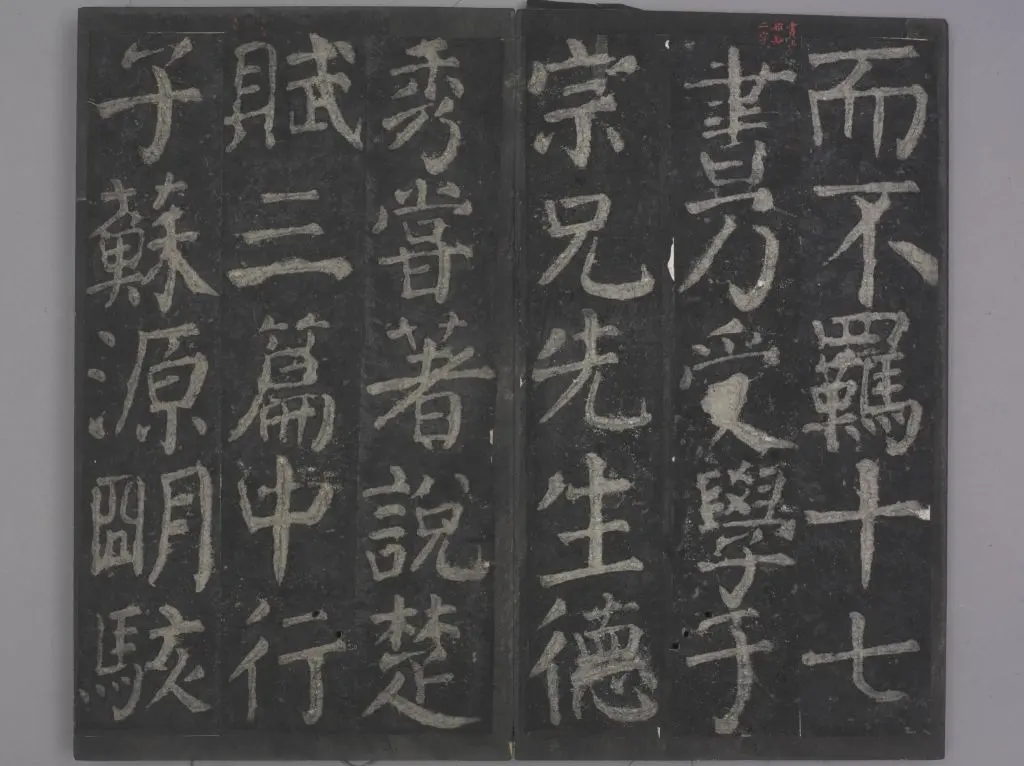 而不羈十七
書乃受學于
宗兄先生德
秀嘗著說楚
賦三篇中行
子蘇源朙駭